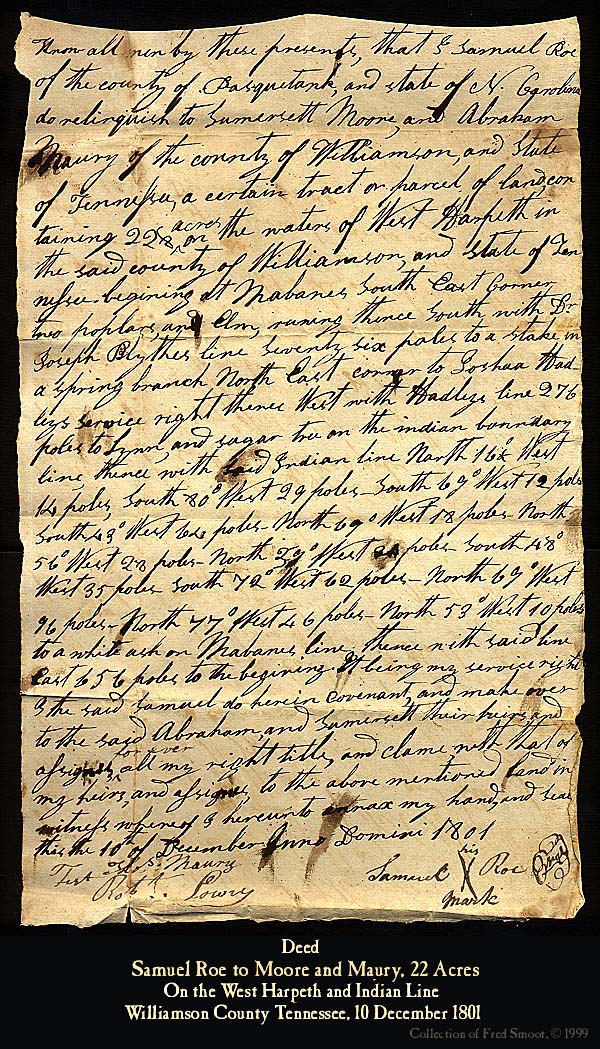 Know all men by these presents, that I Samuel Roe
of the county of Pasquetank, and state of N. Carolina
do relinquish to Sumersett Moore, and Abraham
Maury of the county of Williamson, and State
of Tennessa, a certain tract or parcel, of land, con
taining 228 acres on the waters of West Harpeth in
the said county of Williamson, and state of Ten
nessee. begining at Mabanes South East Corner
two poplars, and Elm, runing thence South, with Dr
Joseph Blythes line seventy six poles to a stake in
a spring branch North East corner to Joshua Had
leys service right thence West with Hadleys line 276
poles to Lynn, and sugar tree on the indian boundary
line, thence with said Indian line North 16° West
14 poles, South 80° West 29 poles South 69° West 12 poles
South 43° West 64 poles North 69° West 18 poles North
56° West 28 poles North West poles South 48°
West 35 poles South 72° West 62 poles North 69° West
96 poles North 77° West 46 poles North 53° West 10 poles
to a white ash on Mabanes line, thence with said line
East 656 poles to the begining. It being my service right
I the said Samuel do herein covenant, and make over
to the said Abraham, and Sumersett their heirs, and
assignes, for ever all my right title, and clame with that of
my heirs, and assignes, to the above mentioned land in
witness whereof I hereunto annax my hand, and seal
this the 10th of December Anno Domini 1801
Test Maury
Robt. Lowry
Samuel his X mark Roe
Deed
Samuel Roe to Moore and Maury, 22 Acres
On the West Harpeth and Indian Line
Williamson County Tennessee, 10 December 1801
Collection of Fred Smoot, © 1999